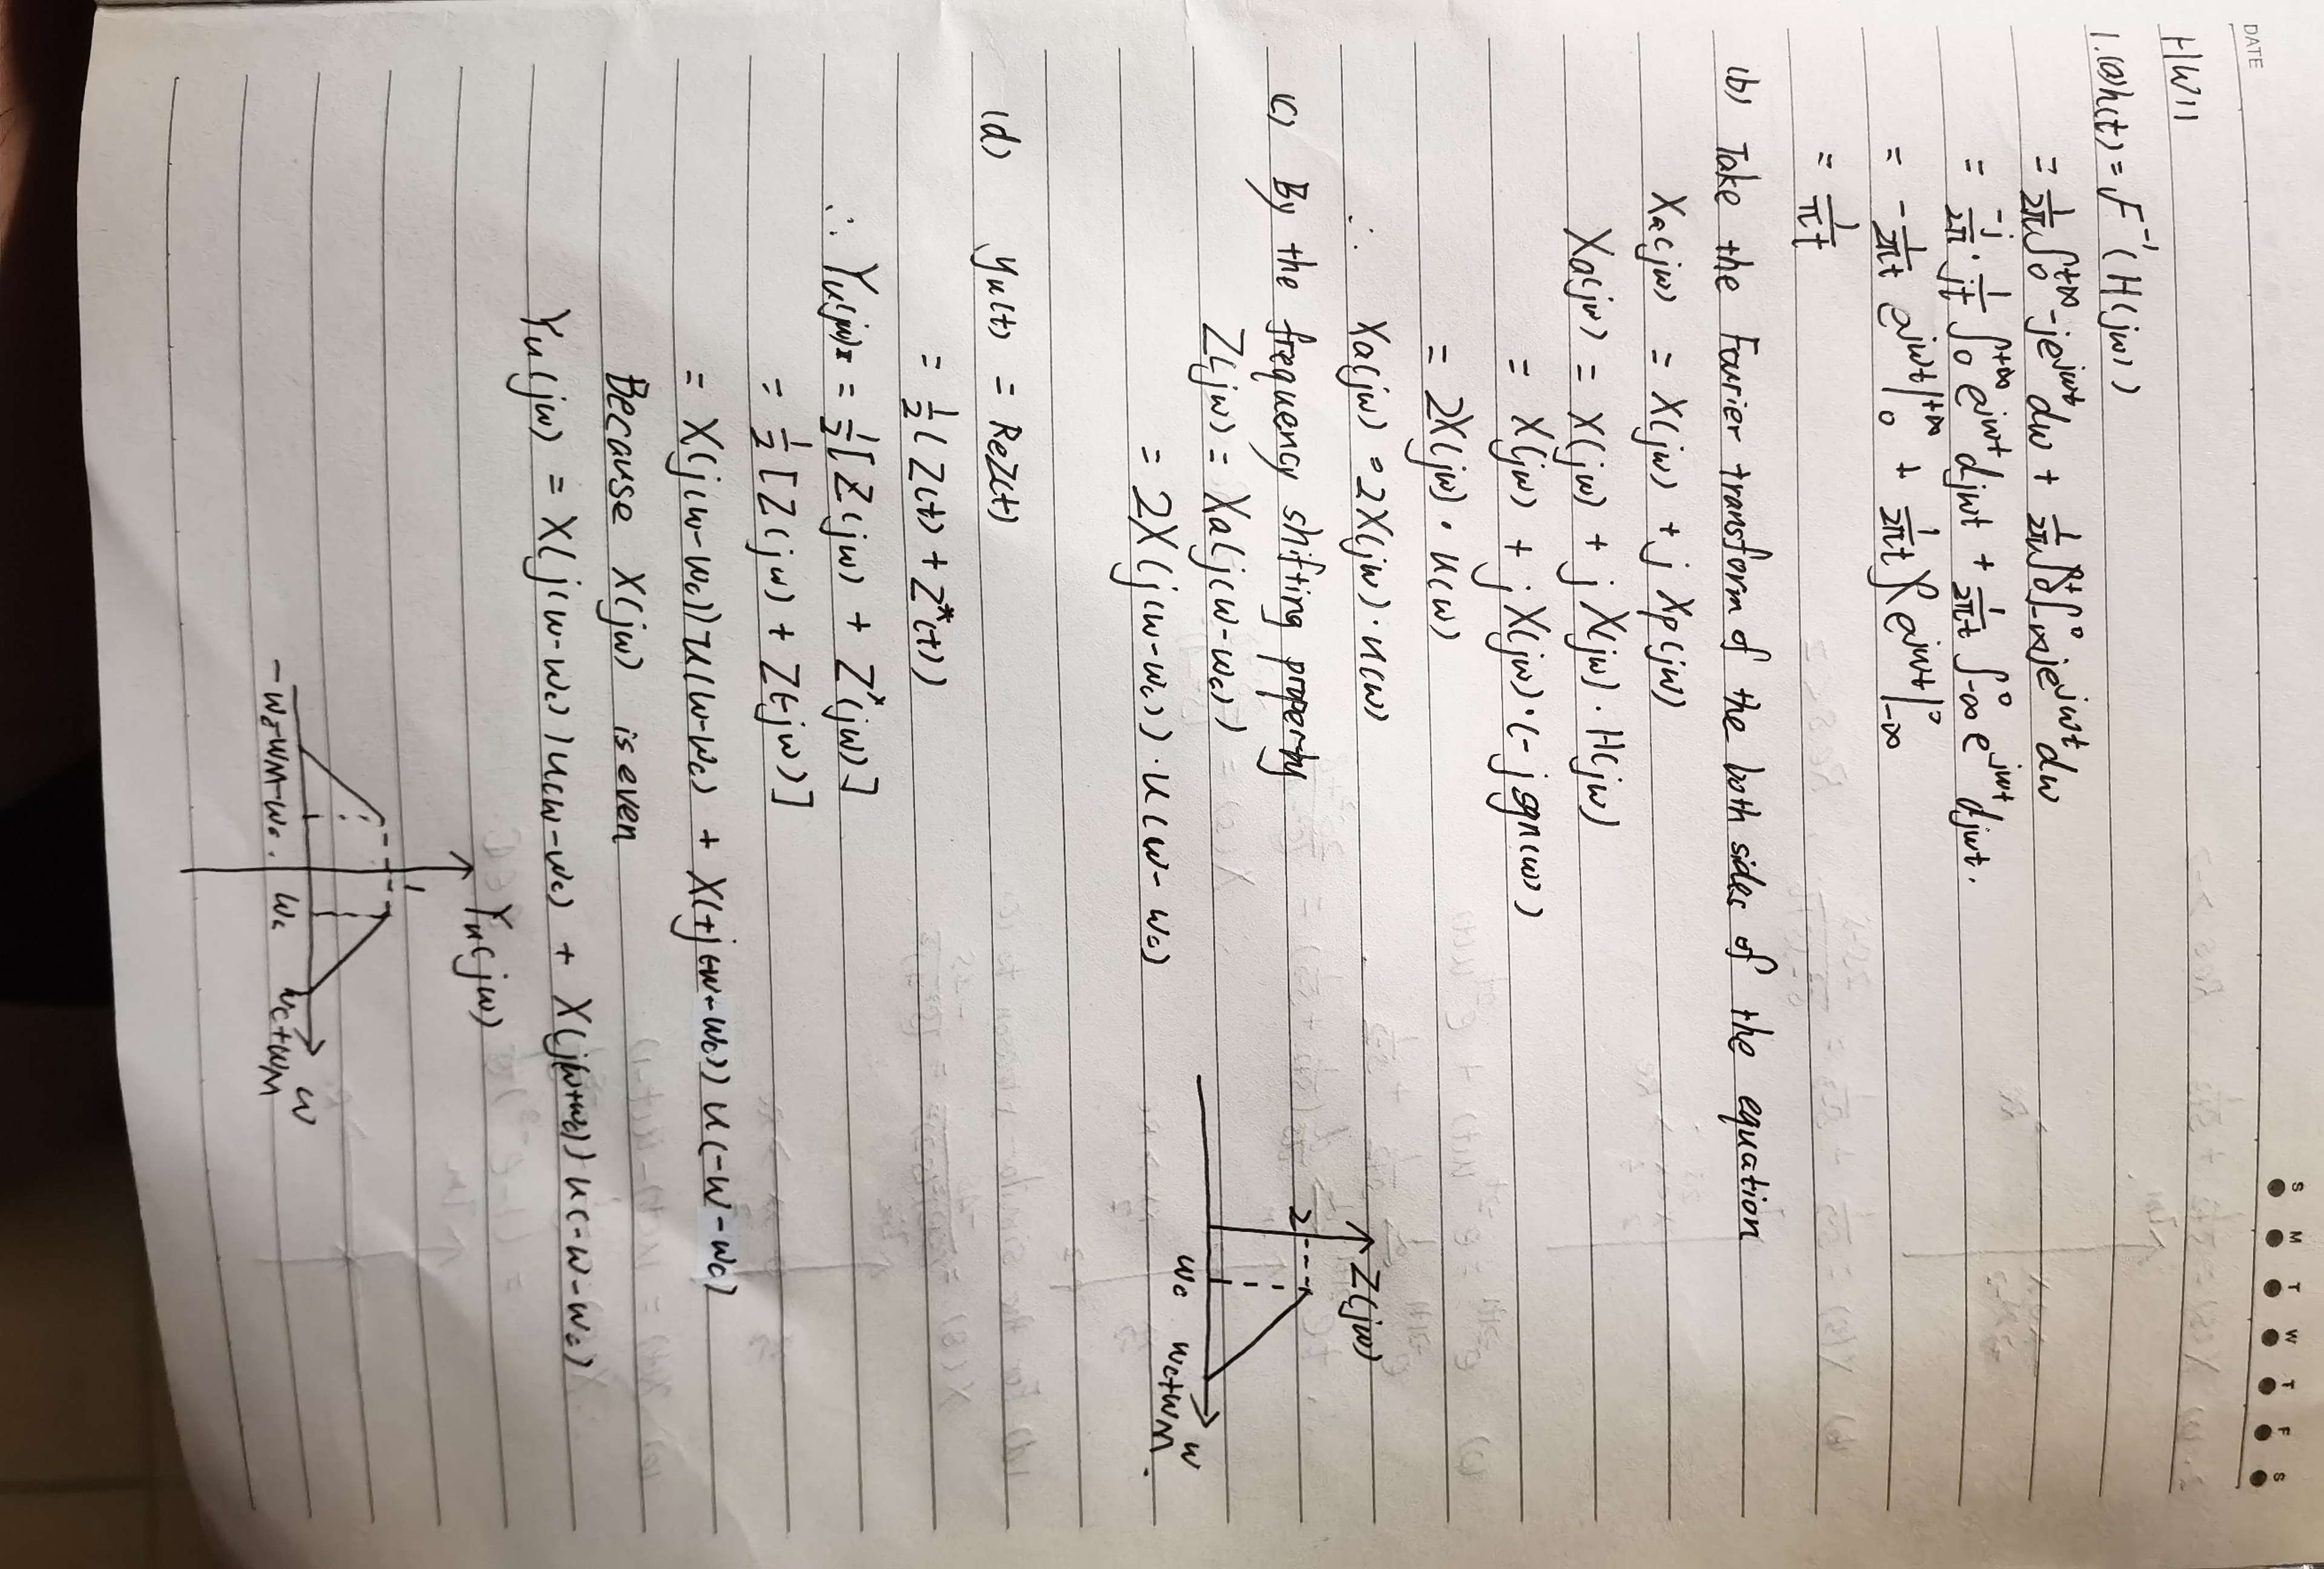 S M T W T F S
DATE
HW11
1.(a) h(t) = F⁻¹(H(jω))
= 1/2π ∫₀^{+∞} -je^{jωt} dω + 1/2π ∫_{-∞}^0 je^{jωt} dω
= -j/2π · 1/jt ∫₀^{+∞} e^{jωt} djωt + 1/2πt ∫_{-∞}^0 e^{jωt} djωt.
= -1/2πt e^{jωt}|₀^{+∞} + 1/2πt e^{jωt}|_{-∞}^0
= 1/πt
(b) Take the Fourier transform of the both sides of the equation
Xa(jω) = X(jω) + j Xp(jω)
Xa(jω) = X(jω) + j X(jω) · H(jω)
= X(jω) + j X(jω) · (-j sgn(ω))
= 2X(jω) · u(ω)
∴ Xa(jω) = 2X(jω) · u(ω)
(c) By the frequency shifting property
Z(jω) = Xa(j(ω-ωc))
= 2X(j(ω-ωc)) · u(ω-ωc)
Z(jω)
2
ωc ωc+ωM ω
(d) yu(t) = Re Z(t)
= 1/2 (Z(t) + Z*(t))
∴ Yu(jω) = 1/2 [Z(jω) + Z*(jω)]
= 1/2 [Z(jω) + Z(-jω)]
= X(j(ω-ωc)) u(ω-ωc) + X(+j(-ω-ωc)) u(-ω-ωc)
Because X(jω) is even
Yu(jω) = X(j(ω-ωc)) u(ω-ωc) + X(j(ω+ωc)) u(-ω-ωc)
Yu(jω)
1
-ωc-ωM -ωc ωc ωc+ωM ω